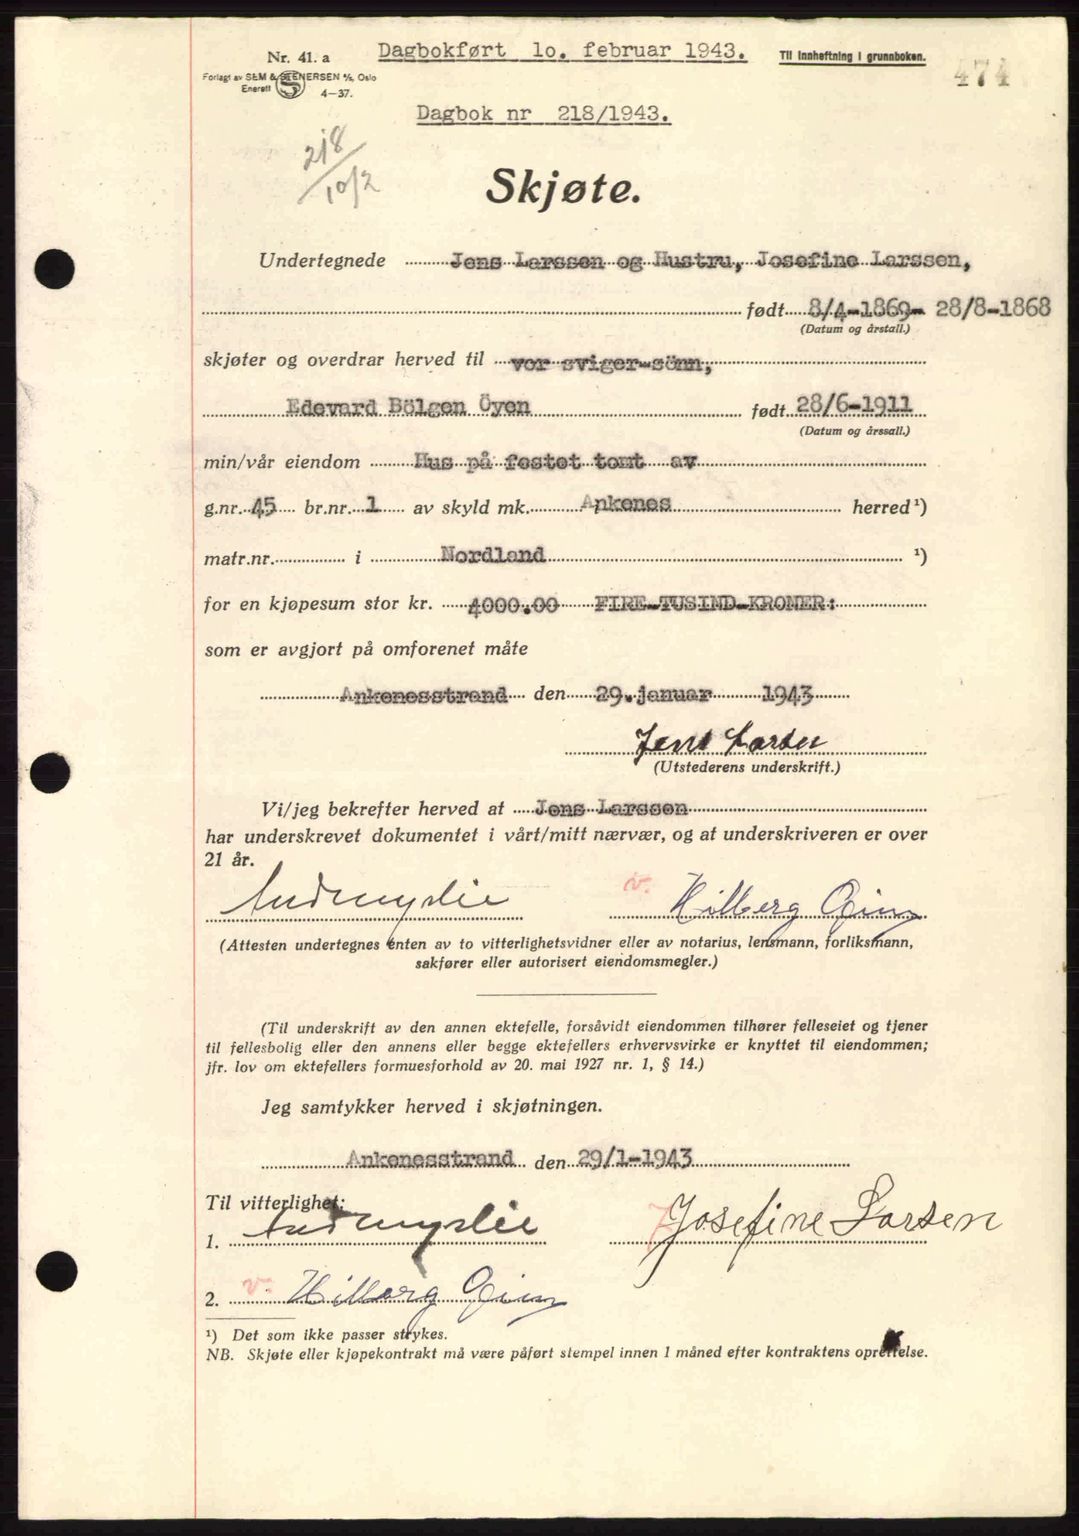 Nr. 41. a
Dagbokført 1o. februar 1943.
Til innheftning i grunnboken.
474
Forlagt av SEM & STENERSEN A/S, Oslo
Enerett
4-37.
Dagbok nr 218/1943.
218
10/2
Skjøte.
Undertegnede Jens Larssen og Hustru, Josefine Larssen,
født 8/4-1869- 28/8-1868
(Datum og årstall.)
skjøter og overdrar herved til vor sviger-sönn,
Edevard Bölgen Öyen født 28/6-1911
(Datum og årssall.)
min/vår eiendom Hus på festet tomt av
g.nr. 45 br.nr. 1 av skyld mk. Ankenes herred ¹)
matr.nr. i Nordland ¹)
for en kjøpesum stor kr. 4000.00 FIRE-TUSIND-KRONER:
som er avgjort på omforenet måte
Ankenesstrand den 29. januar 1943
Jens Larsen
(Utstederens underskrift.)
Vi/jeg bekrefter herved at Jens Larssen
har underskrevet dokumentet i vårt/mitt nærvær, og at underskriveren er over
21 år.
v. Hilberg
(Attesten undertegnes enten av to vitterlighetsvidner eller av notarius, lensmann, forliksmann,
sakfører eller autorisert eiendomsmegler.)
(Til underskrift av den annen ektefelle, forsåvidt eiendommen tilhører felleseiet og tjener
til fellesbolig eller den annens eller begge ektefellers erhvervsvirke er knyttet til eiendommen;
jfr. lov om ektefellers formuesforhold av 20. mai 1927 nr. 1, § 14.)
Jeg samtykker herved i skjøtningen.
Ankenesstrand den 29/1-1943
Til vitterlighet:
1. Josefine Larsen
2. v. Hilberg
¹) Det som ikke passer strykes.
NB. Skjøte eller kjøpekontrakt må være påført stempel innen 1 måned efter kontraktens oprettelse.